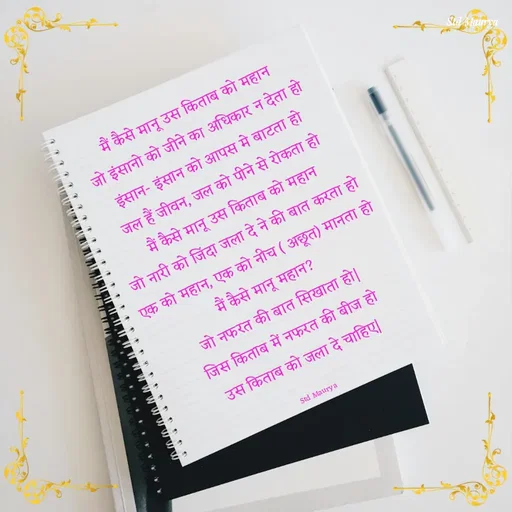 Std Maurya
मैं कैसे मानू उस किताब को महान
जो इंसानो को जीने का अधिकार न देता हो
इंसान- इंसान को आपस मे बाटता हो
जल हैं जीवन, जल को पीने से रोकता हो
मैं कैसे मानू उस किताब को महान
जो नारी को जिंदा जला दे ने की बात करता हो
एक को महान, एक को नीच ( अछूत) मानता हो
मैं कैसे मानू महान?
जो नफरत की बात सिखाता हो|
जिस किताब में नफरत की बीज हो
उस किताब को जला दे चाहिए|
Std Maurya